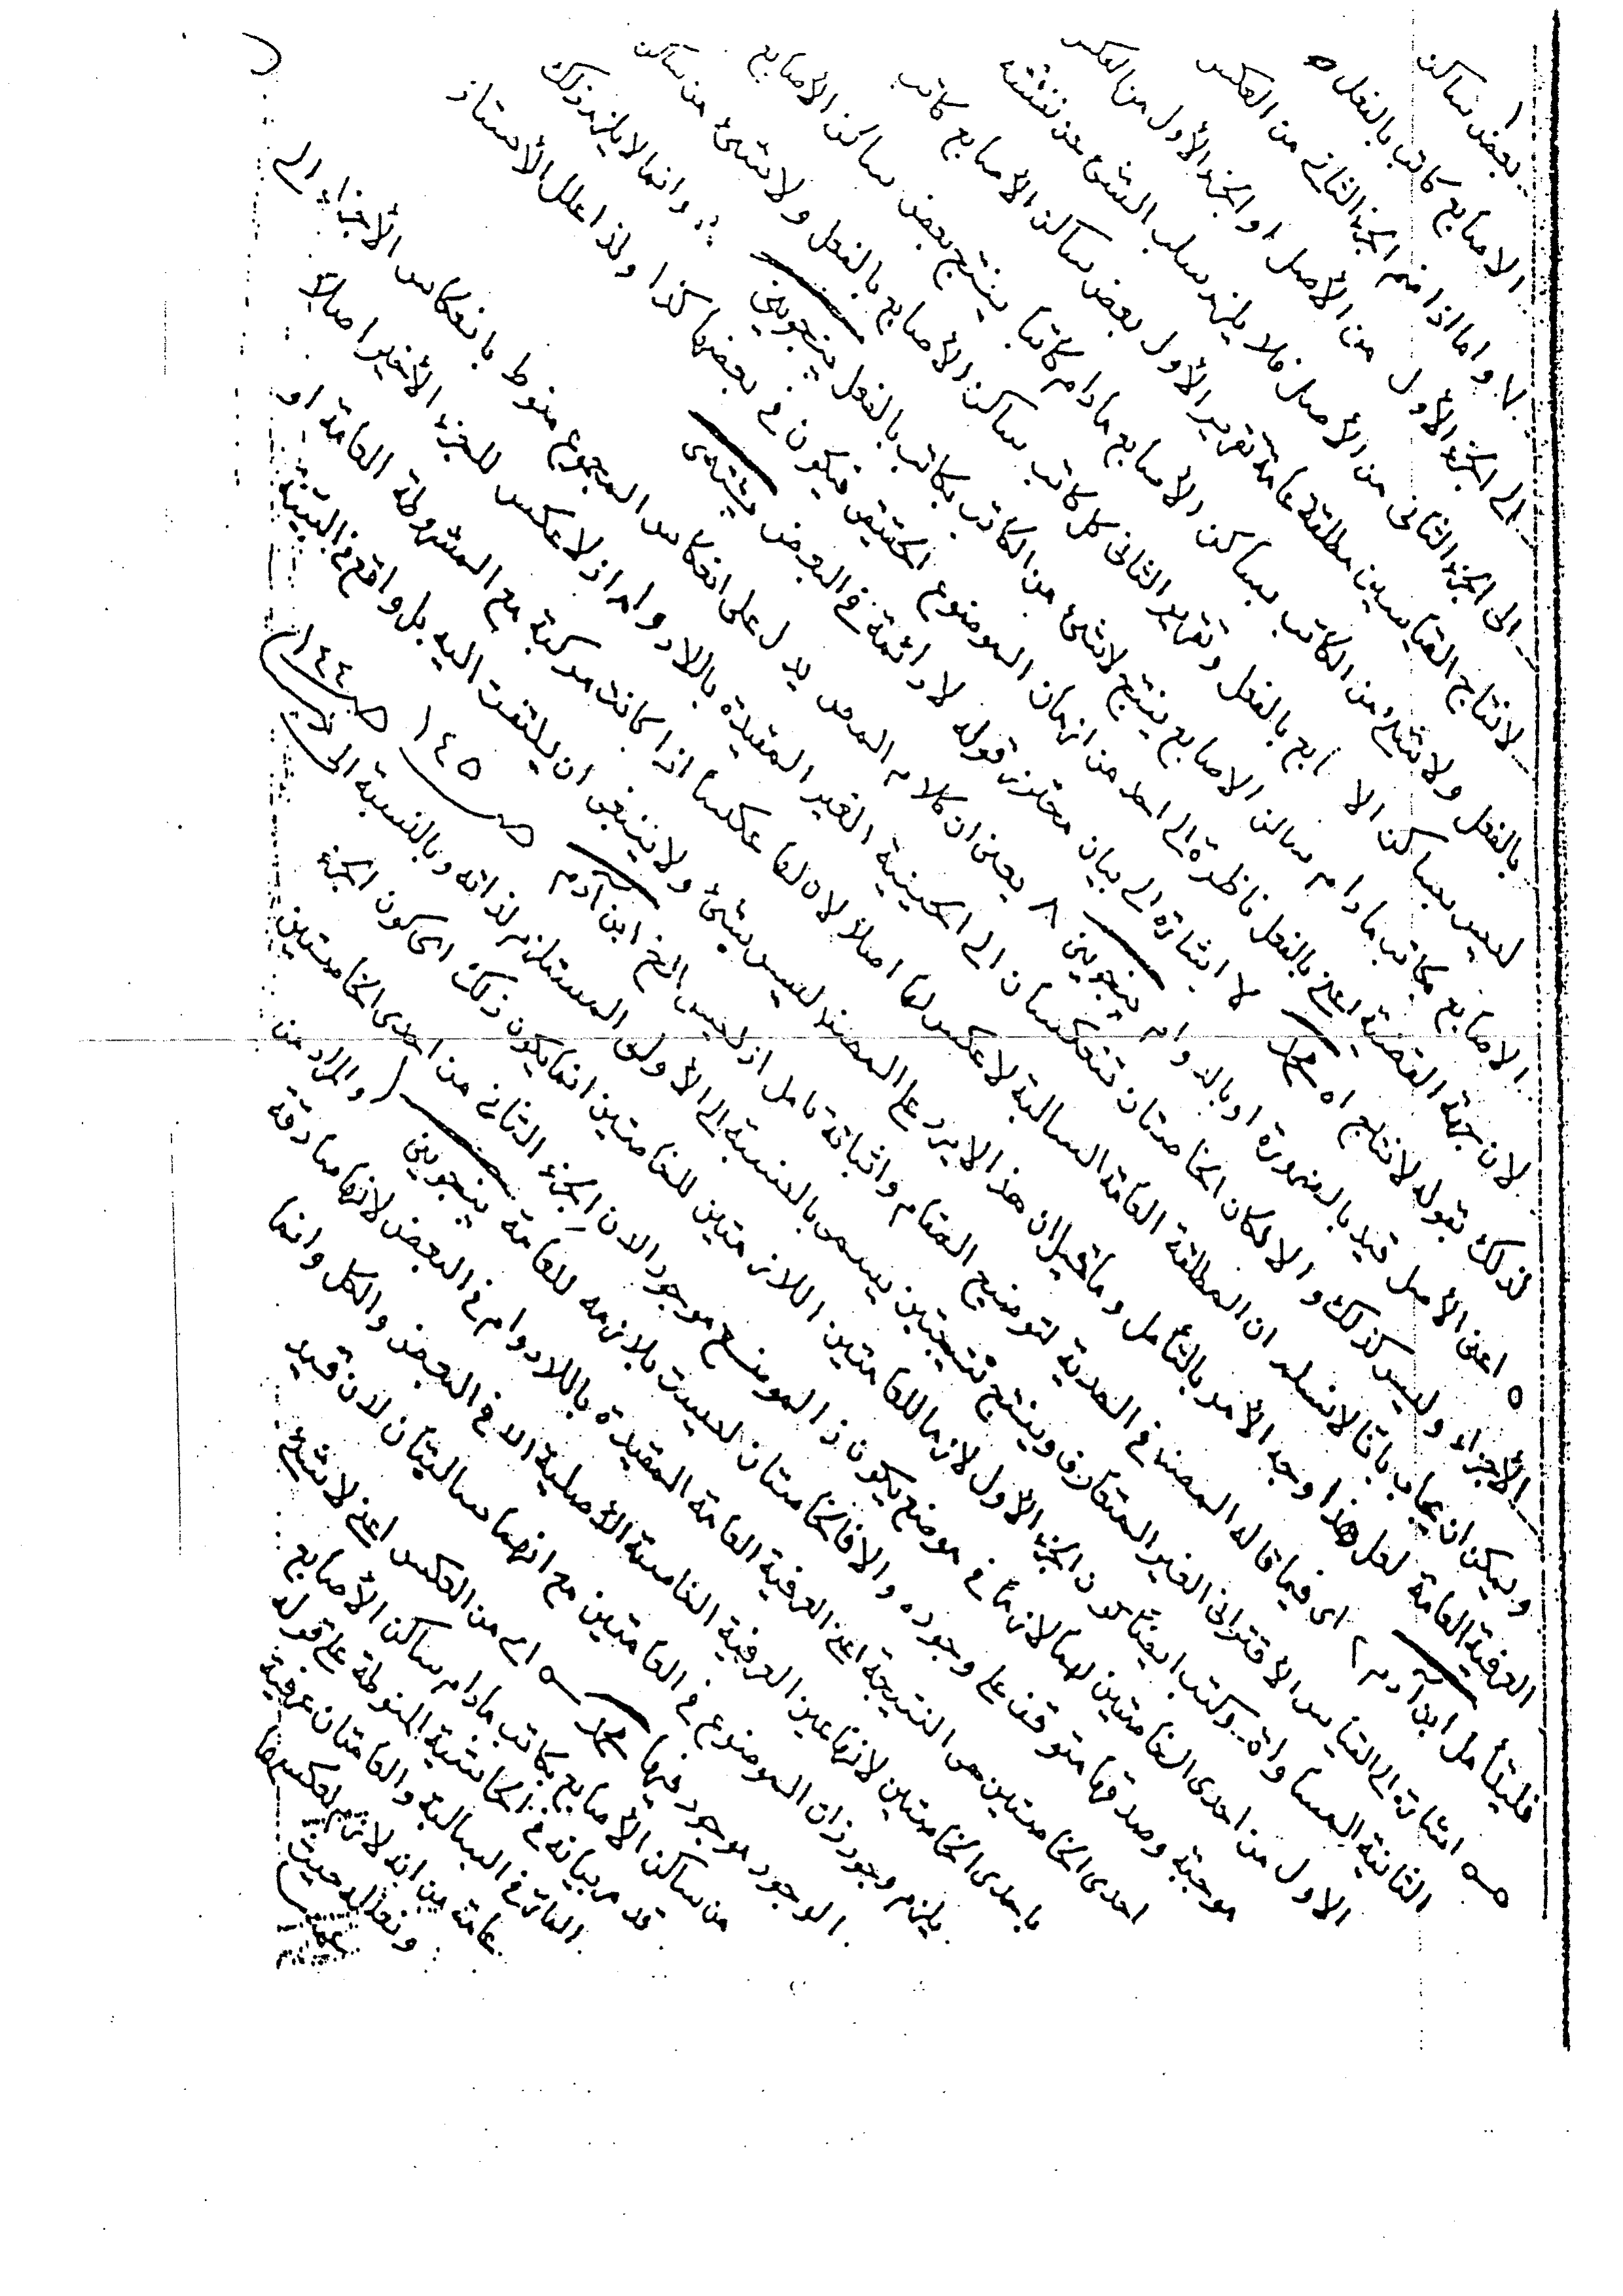 بعض ساكن
الاصابع كاتب بالفعل
٧ واما اذا ضم الجزء الثاني من العكس
الى الجزء الأول من الأصل او الجزء الأول من العكس
الى الجزء الثاني من الأصل فلا يلزم سلب الشئ عن نفسه
لانتاج القياسين مطلقة عامة تقرير الأول بعض ساكن الأصابع كاتب
بالفعل ولا شئ من الكاتب بساكن الأصابع مادام كاتبا ينتج بعض ساكن الأصابع
ليس بساكن الاصابع بالفعل وتقرير الثاني كل كاتب ساكن الأصابع بالفعل ولا شئ من ساكن
الاصابع بكاتب مادام ساكن الاصابع ينتج لا شئ من الكاتب بكاتب بالفعل پنجويني وانما لا يلزم ذلك
لان جهة القضية اعني بالفعل ناظرة الى احد من ازمان الموضوع الحقيقي فيكون في بعضها كذا ولذا علل الأستاذ
لذلك بقوله لانتاج اه محمد لا اشارة الى بيان محترز قوله لا دائمة في البعض
٥ اعني الأصل قيد بالضرورة او بالدوام پنجويني ٨ يعني ان كلام المص يدل على انعكاس المجموع منوط بانعكاس الأجزاء الى
الأجزاء وليس كذلك والا لكان الخاصتان تنعكسان الى الحينية الغير المقيدة باللادوام اذ لا عكس للجزء الأخير اصلا
ويمكن ان يجاب بانا لا نسلم ان المطلقة العامة السالبة لا عكس لها اصلا لان لها عكسا اذا كانت مركبة مع المشروطة العامة او
العرفية العامة لعل هذا وجه الأمر بالتأمل وما قيل ان هذا لا يرد على المصنف ليس بشئ ولا ينبغي ان يلتفت اليه بل واقع في البيته
فليتأمل ابن آدم ٢ اى فيما قاله المصنف في الهدية لتوضيح المقام واثباته تامل اذ ليس الخ ابن آدم ص ١٤٥ ص ١٤٤
اشارة الى القياس الاقتراني الغير المتعارف وينتج نتيجتين يسمى بالنسبة الى الأولى المستلزم لذاته وبالنسبة الى
الثانية المساواة وكتب ايضا كون الجزء الأول لازما للعامتين اللازمتين للخاصتين انما يكون ذلك اى كون الجزء
الاول من احدى الخاصتين لهما لازما في موضع يكون ذا الموضع موجود الان الجزء الثاني من احدى الخاصتين
موجبة وصدقها متوقف على وجوده والا فالخاصتان ليست بلازمه للعامة پنجويني والمراد من
احدى الخاصتين هى النتيجة اعني العرفية العامة المقيدة باللادوام في البعض لانها صادقة
باحدى الخاصتين لانها عين العرفية الخاصة الأصلية الا في البعض والكل وانما
يلزم وجود ذات الموضوع في العامتين مع انهما سالبتان لان قيد
الوجود موجود فيها محمد اى من العكس اعني لا شئ
من ساكن الأصابع بكاتب مادام ساكن الأصابع
قد مر بيانه في الحاشية المنوطة على قوله
المارة في السالبة والعامتان عرفية
عامة من انه لازم لعكسها
ونعا له حيث
عمر